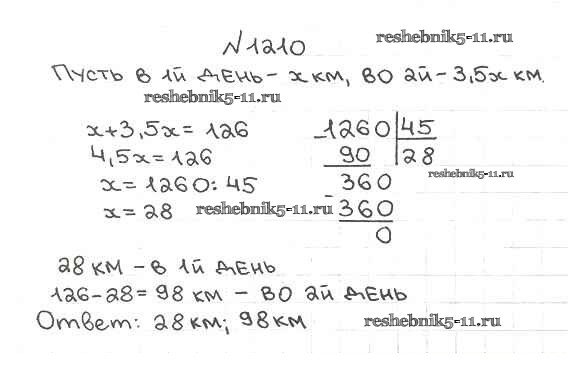 N1210 reshebnik5-11.ru
Пусть в 1й день - x км, во 2й - 3,5x км.
reshebnik5-11.ru
x+3,5x= 126
4,5x=126
x= 1260:45
x= 28 reshebnik5-11.ru
1260 45
90 28
360 reshebnik5-11.ru
360
0
28 км - в 1й день
126-28= 98 км - во 2й день
Ответ: 28км; 98км reshebnik5-11.ru